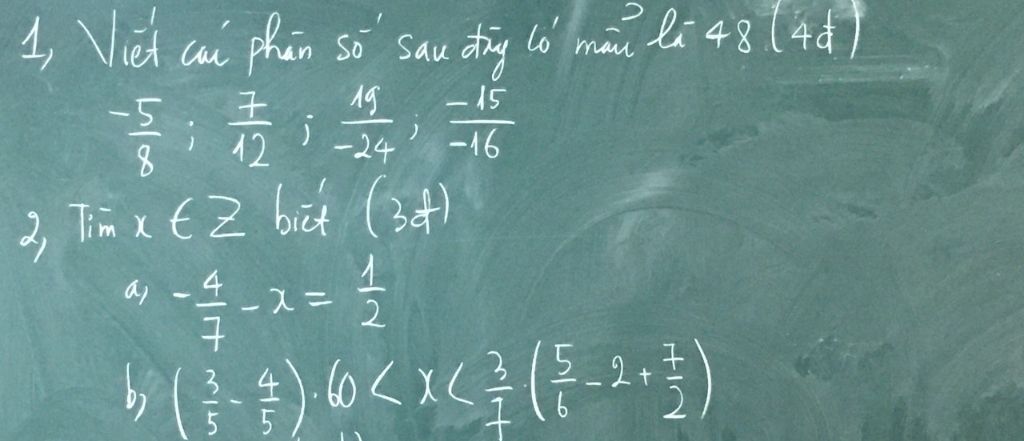 1, Viết các phân số sau đây có mẫu là 48 (4đ)
-5/8 ; 7/12 ; 19/-24 ; -15/-16
2, Tìm x ∈ Z biết (3đ)
a, -4/7 - x = 1/2
b, (3/5 - 4/5) . 60 < x < 3/7 . (5/6 - 2 + 7/2)